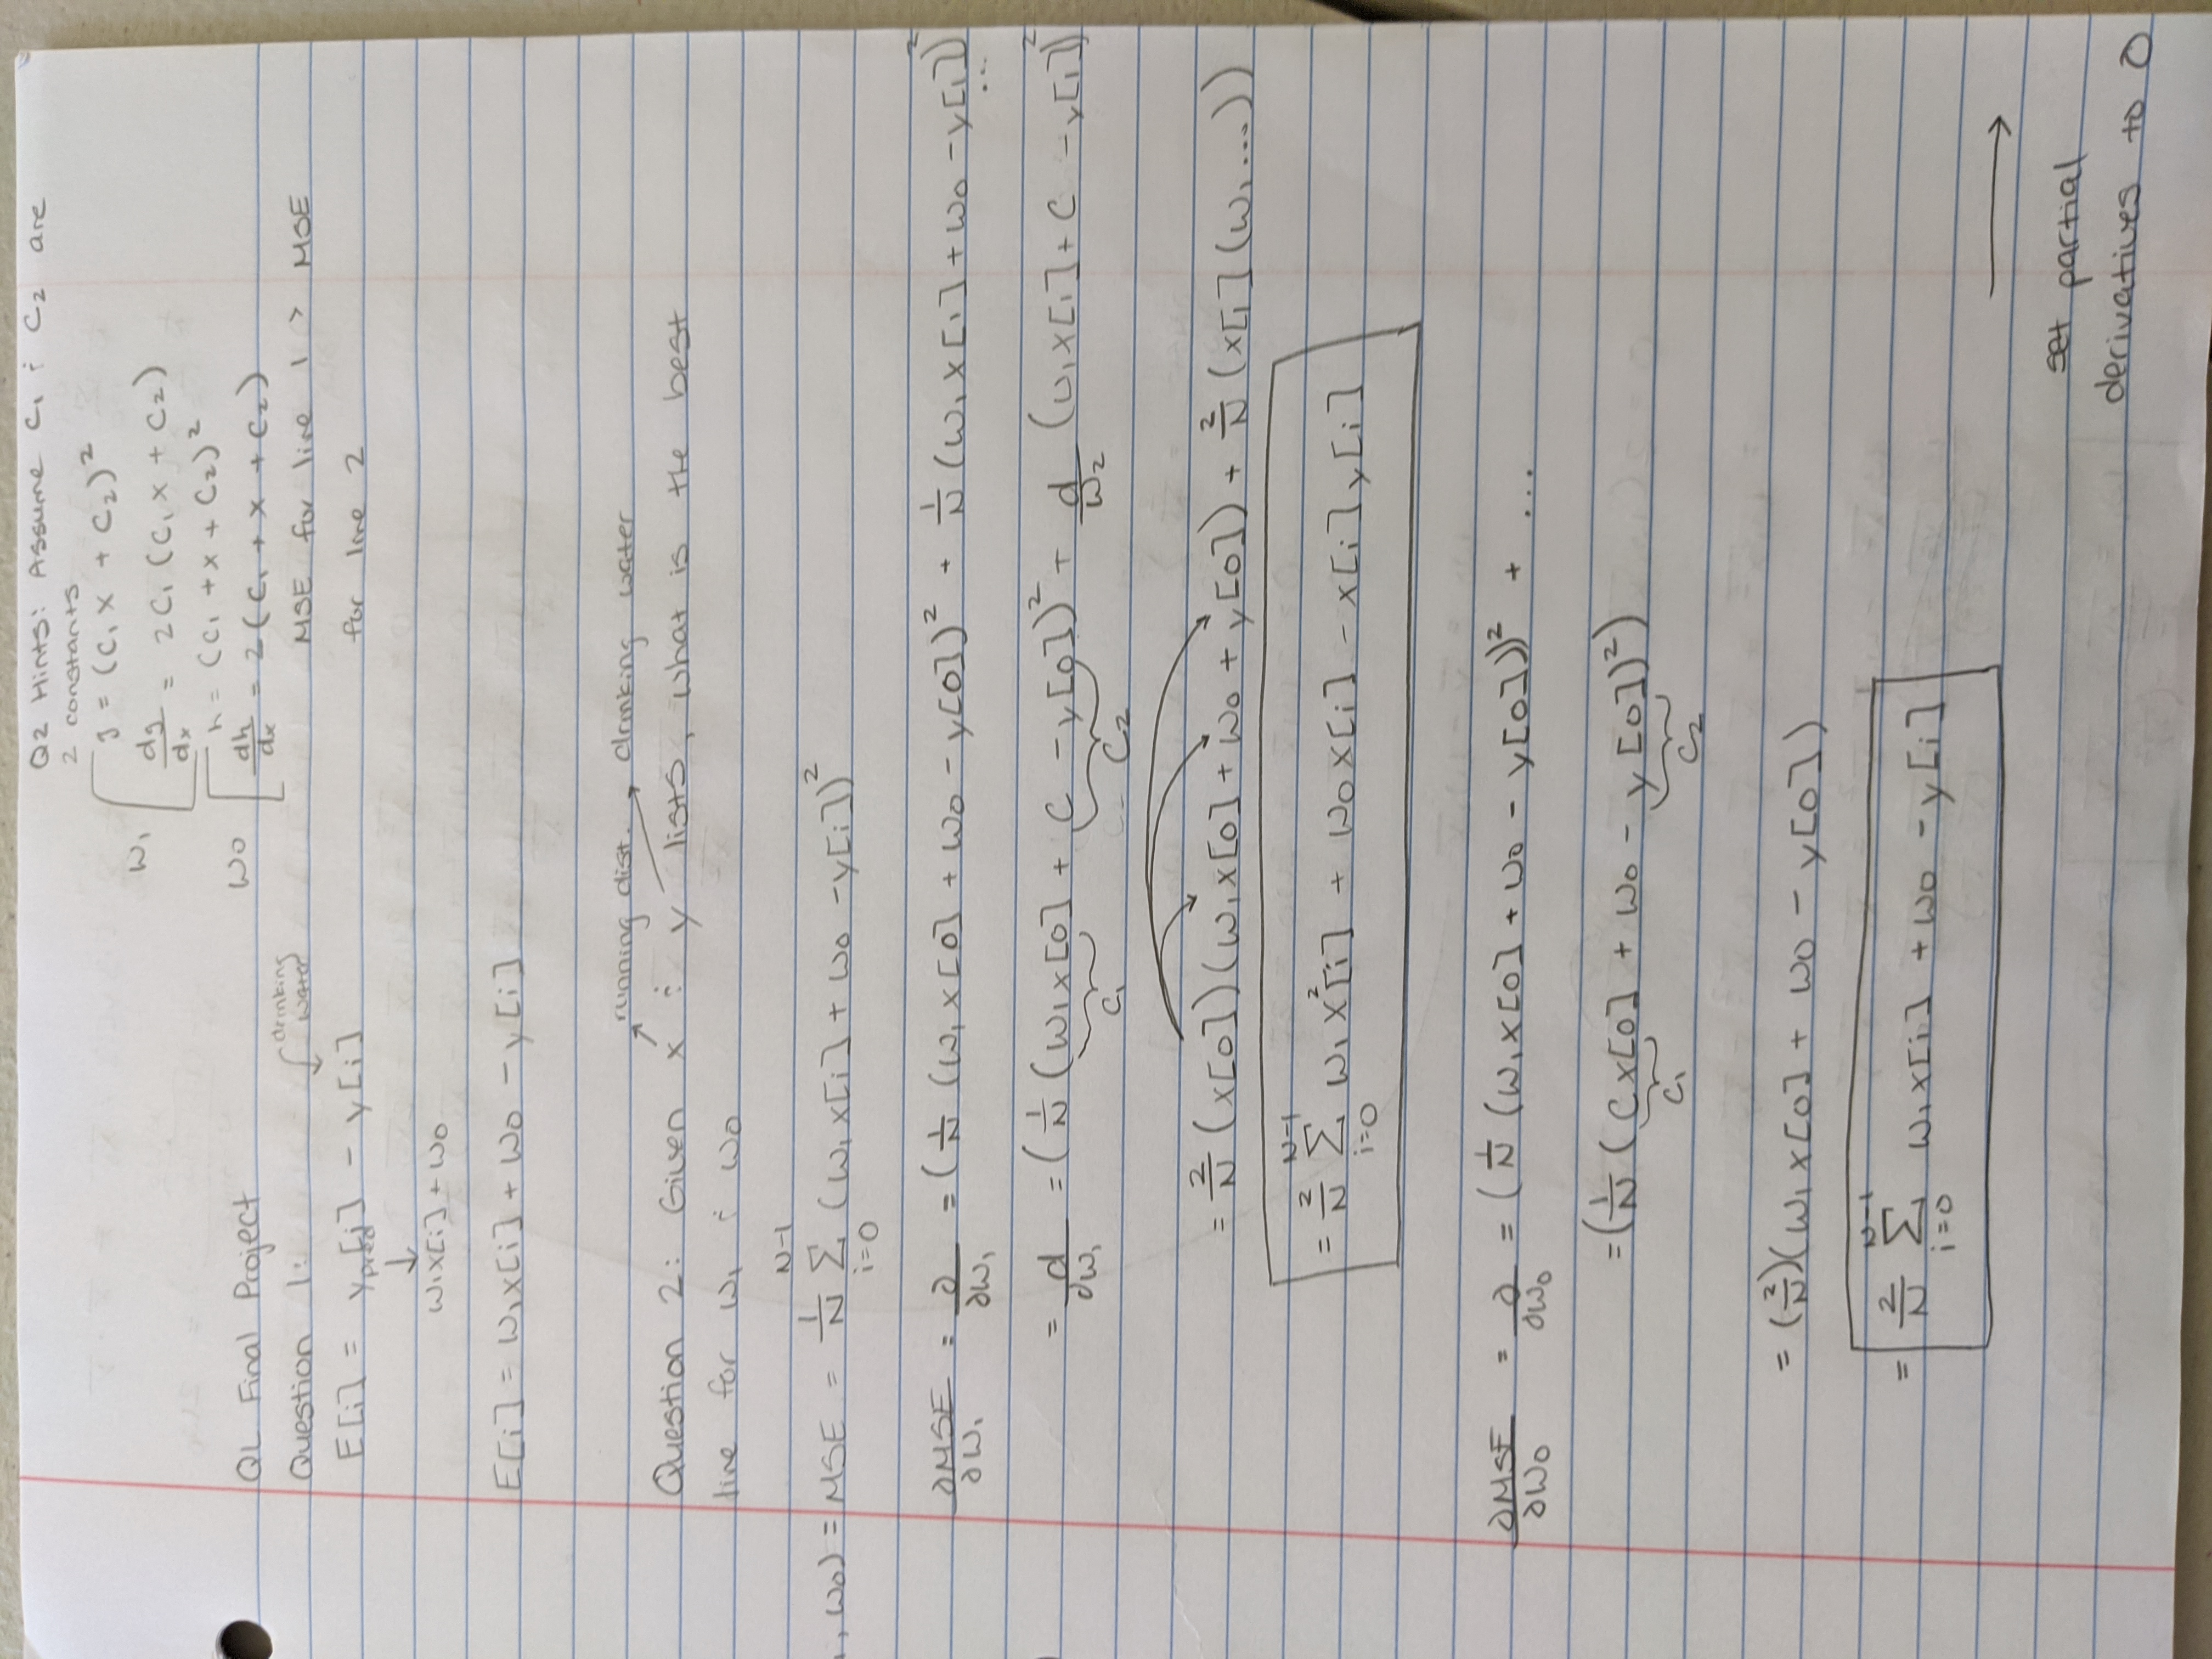 Q2 Hints: Assume C₁ ⋮ C₂ are
2 constants
w₁ [ g = (C₁x + C₂)²
dg/dx = 2C₁(C₁x + C₂)
w0 [ h = (C₁ + x + C₂)²
dh/dx = 2(C₁ + x + C₂)
MSE for line 1 > MSE
for line 2
QL Final Project
Question 1:
drinking
water
E[i] = ypred[i] - y[i]
↓
w₁x[i] + w0
E[i] = w₁x[i] + w0 - y[i]
running dist. → drinking water
Question 2: Given x ⋮ y lists, what is the best
line for w₁ ⋮ w0
, w0) = MSE = 1/N Σ_{i=0}^{N-1} (w₁x[i] + w0 - y[i])²
∂MSE/∂w₁ = ∂/∂w₁ = (1/N (w₁x[0] + w0 - y[0])² + 1/N (w₁x[1] + w0 - y[1])² ...
= d/∂w₁ = (1/N (w₁x[0] + C - y[0])² + d/w₂ (w₁x[1] + C - y[1])²
C₁ C₂
= 2/N (x[0])(w₁x[0] + w0 + y[0]) + 2/N (x[1](w₁...))
= 2/N Σ_{i=0}^{N-1} w₁x²[i] + w0x[i] - x[i]y[i]
∂MSE/∂w0 = ∂/∂w0 = (1/N (w₁x[0] + w0 - y[0]))² + ...
= (1/N (Cx[0] + w0 - y[0])²)
C₁ C₂
= (2/N)(w₁x[0] + w0 - y[0])
= 2/N Σ_{i=0}^{N-1} w₁x[i] + w0 - y[i]
→
set partial
derivatives to 0